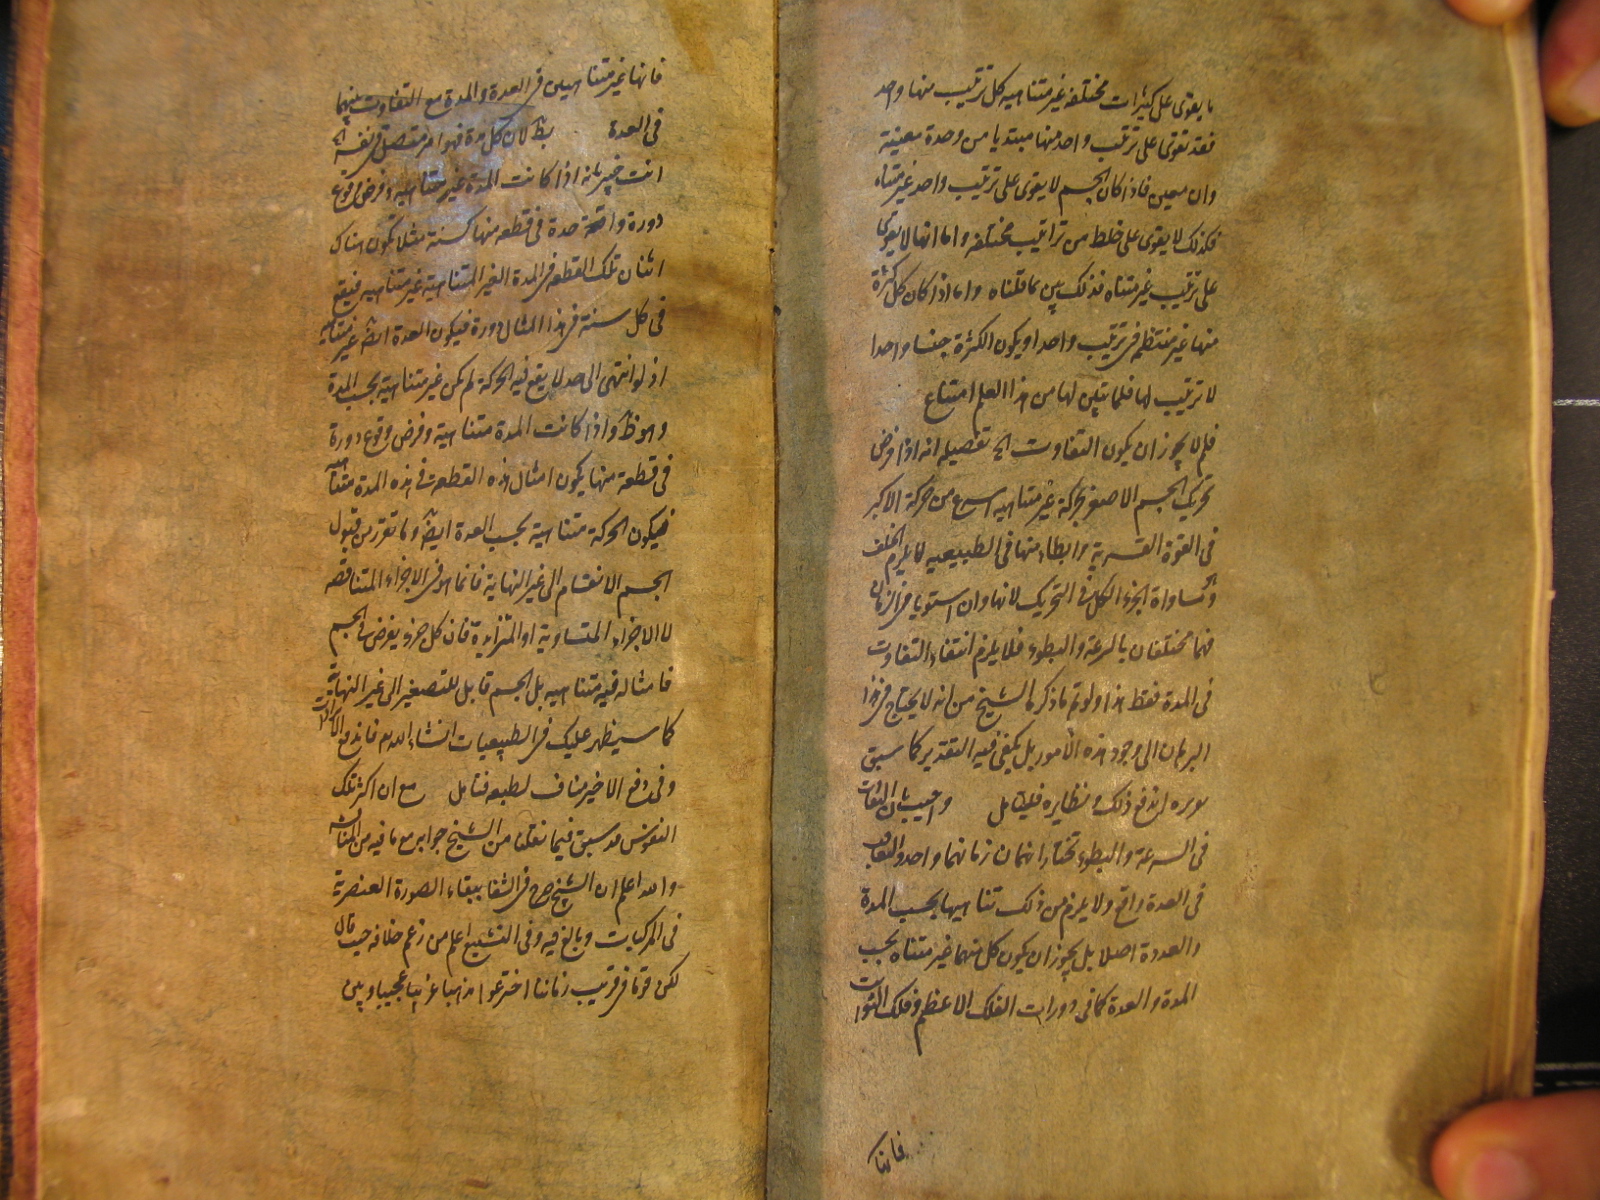 ما يقوى على كثيرات مختلفه غير متناهيه كل ترتيب منها واحد
فقد تقوى على ترتيب واحد منها مبتديا من وحدة معينة
وان معين فاذا كان الجسم لا يقوى على ترتيب واحد غير متناه
فكذلك لا يقوى على خلط من تراتيب مختلفه واما انها لا يقوى
على ترتيب غير متناه فذلك بين مما قلناه واما اذا كان كل كثرة
منها غير منتظم فى ترتيب واحد او يكون الكثرة جنسا واحدا
لا ترتيب لها فلما يتبين لها من هذا العلم امتناع
فلم لا يجوز ان يكون التفاوت الخ تفصيله انه اذا فرض
تحريك الجسم الاصغر بحركة غير متناهيه اسرع من حركة الاكبر
فى القوة القسرية وابطاء منها فى الطبيعيه لا يلزم الخلف
ومساواة الجزء الكل فى التحريك لانها وان استويا فى الزمان
فهما مختلفان بالسرعة والبطوء فلا يلزم انتفاء التفاوت
فى المدة فقط هذا ولو تم ما ذكره الشيخ من انه لا يحتاج فى هذا
البرهان الى وجود هذه الامور بل يكفى فيه التقدير كما سبق
اندفع ذلك ونظايره فليتامل واجيب بان التفاوت
فى السرعة والبطوء تختار انهما ان زمانهما واحد والتفاوت
فى العدة واقع ولا يلزم من ذلك تناهيها بحسب المدة
والعدة اصلا بل يجوز ان يكون كل منهما غير متناه بحسب
المدة والعدة كما فى دورات الفلك الاعظم وفلك الثوابت
فانها
فانها غير متناهيين فى العدة والمدة مع التفاوت بينهما
فى العدة لان كل مدة فهو امر متصل فى نفسه الخ
انت خبير بانه اذا كانت المدة غير متناهيه وفرض وقوع
دورة واحدة فى قطعه منها كسنة مثلا يكون هناك
امثال تلك القطعه فى المدة الغير المتناهية غير متناهيه فيقع
فى كل سنة فى هذا المثال دورة فيكون العدة ايضا غير متناهيه
اذ لو انتهى الى حد لا يقع فيه الحركة لم يكن غير متناهية بحسب المدة
وهو ظ واذا كانت المدة متناهية وفرض وقوع دورة
فى قطعة منها يكون امثال هذه القطعة فى هذه المدة متناهيه
فيكون الحركة متناهية بحسب العدة ايضا وما تقرر من قبول
الجسم الانقسام الى غير النهاية فانما هو فى الاجزاء المتناقصه
لا الاجزاء المتساوية او المتزايدة فان كل جزء يفرض فى الجسم
فامثاله فيه متناهيه بل الجسم قابل للتصغير الى غير النهاية
كما سيظهر عليك فى الطبيعيات انشاء الله تع فاندفع
وفى دفع الاخير مناف لطبعه فتامل مع ان اكثر تلك
النقوض قد سبق فيما نقلنا من الشيخ جوابه مع ما فيه من المناقشه
والله اعلم ان الشيخ صرح فى الشفا ببقاء الصورة العنصرية
فى المركبات وبالغ فيه وفى التشنيع اعلم من زعم خلافه حيث قال
لكن قوما فى قريب زماننا اخترعوا مذهبا غريبا عجيبا وبين